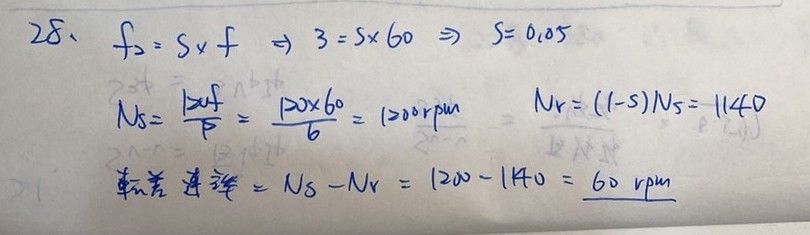 28、 f₂ = S × f ⇒ 3 = S × 60 ⇒ S = 0.05
Ns = 120f/P = 120×60/6 = 1200rpm Nr = (1-S)Ns = 1140
転差 速率 = Ns - Nr = 1200 - 1140 = 60 rpm